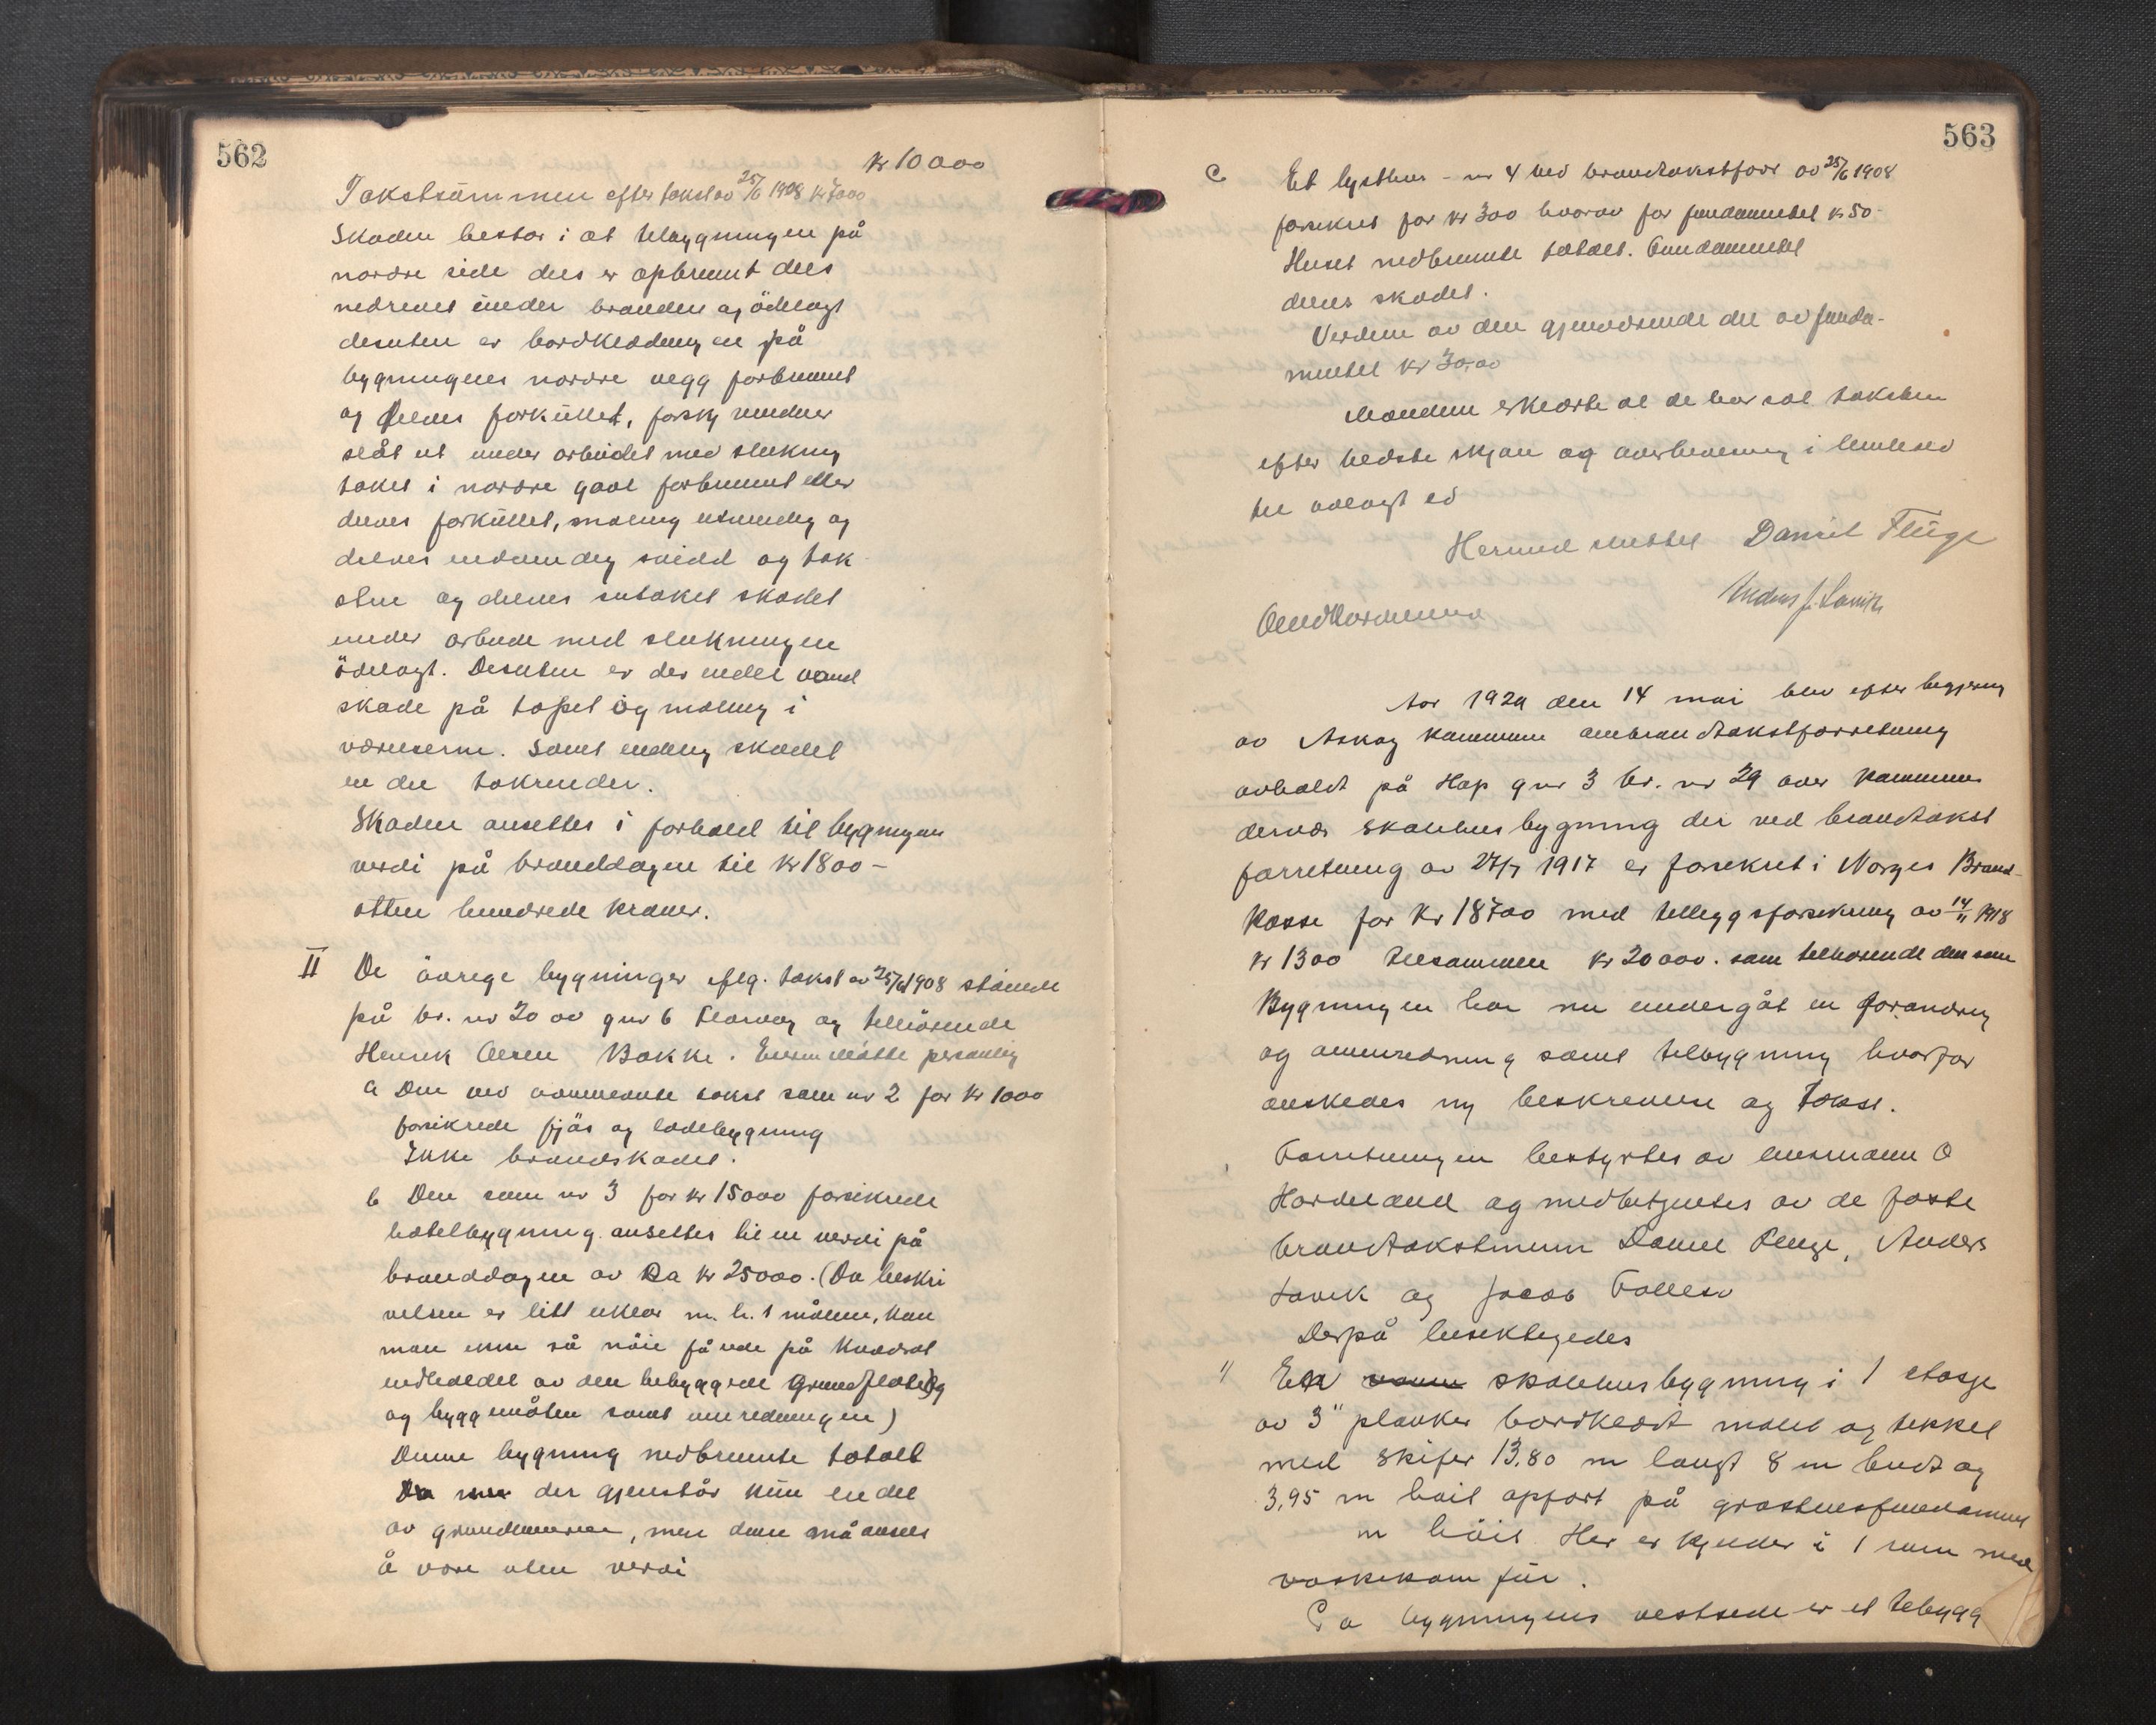 562
kr 10000
Takstsummen efter takst av 25/6 1908 kr 7000
Skaden bestar i at tilbygningen på
nordre side dels er opbrennt dels
nedrevet under branden og ödelagt
desuten er bordklædning en på
bygningens nordre vegg forbrennt
og delves forkullet, forsky vinduer
slåt ut under arbeidet med slukning
taket i nordre gavl forbrennt eller
delves forkullet, maling utvendig og
delves indvendig svidd og tak
sten og delves sutaket skadet
under arbeide med slukningen
ödelagt. Desuten er der endel vand
skade på tapet og maling i
værelserne. Samt endelig skadet
en del takrender.
Skaden ansettes i forhold til bygningens
verdi på branddagen til kr 1800 -
atten hundrede kroner.
II De övrige bygninger iflg. takst av 25/6 1908 stående
på br. nr 20 av gnr 6 Florvåg og tilhörende
Henrik Olsen Bakke. Eieren mötte personlig
a Den ved avnævnte takst som nr 2 for kr 1000
forsikrede fjös og ladebygning
Ikke brandskadet.
b Den som nr 3 for kr 15000 forsikrede
hotelbygning ansettes til en verdi på
branddagen av Ca kr 25000. (Da beskri
velsen er litt uklar m. h. t målene, kan
man ikke så nöie få rede på kvadrat
indholdet av den bebyggede grundflate og
og byggemåten samt innredningen)
Denne bygning nedbrennte totalt
Da der gjenstår kun en del
av grundmuren, men denne må ansees
å være uten verdi
563
c Et lysthus - nr 4 ved brandtakstforr av 25/6 1908
forsikret for kr 300 hvorav for fundamentet kr 50-
Huset nedbrennte totalt. Fundamentet
delves skadet.
Verdien av den gjenværende del av funda-
mentet kr 30,00
Mændene erklærte at de har sat taksten
efter bedste skjön og overbevisning i henhold
til avlagt ed
Hermed sluttet Daniel Fluge
Anders J. Larvik
O Hordnæs
Aar 1929 den 14 mai blev efter begjæring
av Askøy kommune ombrandtakstforretning
avholdt på Hop gnr 3 br. nr 29 over kommunens
derværende skolehusbygning der ved brandtakst
forretning av 27/7 1917 er forsikret i Norges Brand-
kasse for kr 18700 med tilleggsforsikring av 14/11 1918
kr 1300 tilsammen kr 20000. som tilhörende den som
Bygningen har nu undergåt en forandring
og ominredning samt tilbygning hvorfor
önskedes ny beskrivelse og takst.
Forretningen bestyrtes av lensmann O
Hordnæs og medbetjentes av de faste
brandtakstmenn Daniel Fluge, Anders
Larvik og Jacob Follesø
Derpå besiktigedes
1) En skolehusbygning i 1 etasje
av 3" planker bordklædt malet og tekket
med skifer 13,80 m langt 8 m bredt og
3,95 m höit opfört på gråstensfundament
m höit. Her er kjelder i 1 rum med
vaskekam für.
På bygningens vestside er et tilbygg